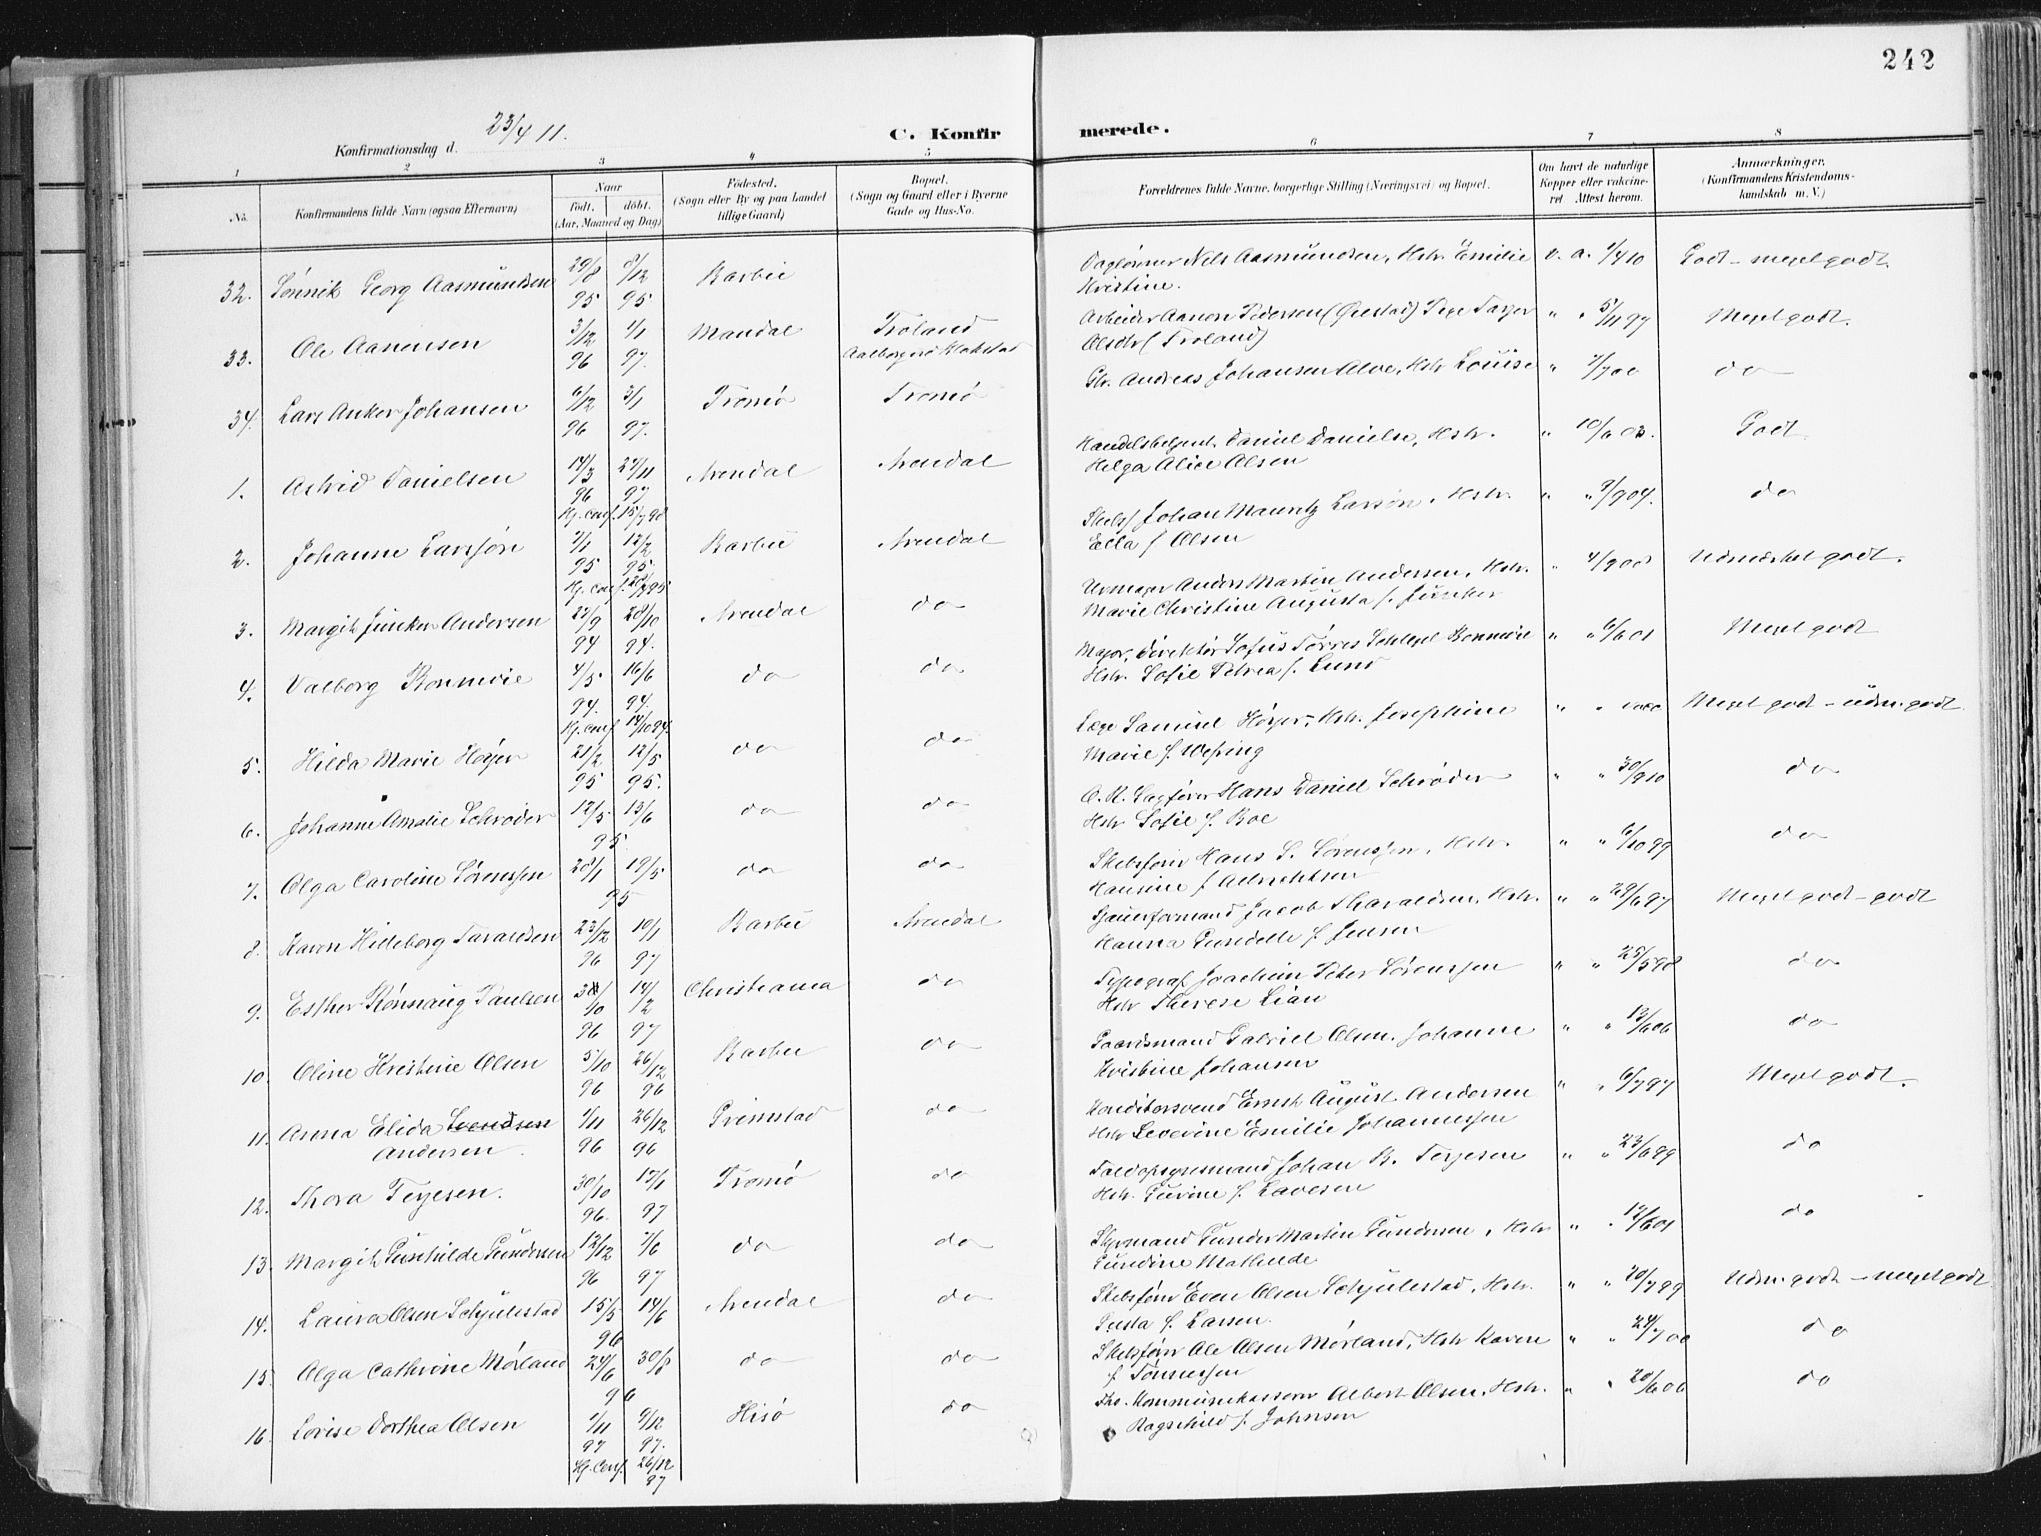 242
Konfirmationsdag d. 23/4 11.
C. Konfirmerede.
1 2 3 4 5 6 7 8
No.
Konfirmandens fulde Navn (ogsaa Efternavn)
Naar
født. døbt.
(Aar, Maaned og Dag)
Fødested.
(Sogn eller By og paa Landet
tillige Gaard)
Bopæl.
(Sogn og Gaard eller i Byerne
Gade og Hus-No.
Forældrenes fulde Navne, borgerlige Stilling (Næringsvei) og Bopæl.
Om havt de naturlige
Kopper eller vakcine-
ret. Attest herom.
Anmærkninger.
(Konfirmandens Kristendoms-
kundskab m. V.)
32. Sønnik Georg Aasmundsen 29/8 95 8/12 95 Barbu Daglønner Nils Aasmundsen, Hstr. Emilie v. a. 1/4 10 Godt - meget godt.
Kristine.
33. Ole Aanensen 3/12 96 1/1 97. Mandal Troland Arbeider Aanon Pedersen (Ørestad) " " 5/11 97 Meget godt.
Aalborgsrø Klokstad Olsdtr (Troland)
34. Lars Anker Johansen 6/12 96 3/1 97. Tromø Tromø Gb. Andreas Johansen Alve, Hstr Louise " 7/7 00 do
1. Astrid Danielsen 14/3 96 27/11 97 Arendal Arendal Handelsbetjent Daniel Danielsen, Hstr. " 10/6 03. Godt
Kj. conf. 15/7 98 Helga Alice Olsen
2. Johanne Larssøn 7/1 95 12/2 95. Barbu Arendal Skibsf Johan Mauritz Larsøn, Hstr. " " 9/9 04. do
Ella f. Olsen
3. Margit Junker Andersen 27/9 94 28/10 94. Arendal do Urmager Anders Martin Andersen, Hstr. " 4/9 08 Udmærket godt.
Marie Christine Augusta f. Juncker
4. Valborg Bonnevie 4/5 94. 16/6 94. do do Major, Direktør Sofus Tørres Schlegel Bonnevie " " 6/6 01 Meget godt
Kj. conf. 14/10 94. Hstr. Sofie Petrea f. Lund
5. Hilda Marie Høyer 21/2 95 12/5 95. do do Læge Samuel Høyer, Hstr. Josephine " " Meget godt - udm. godt
Marie f. Wesing
6. Johanne Amalie Schrøder 12/5 13/6 95. do do O. R. Sagfører Hans Daniel Schrøder " " 30/9 10 do
Hstr Sofie f. Boe
7. Olga Caroline Sørenssen 28/1 19/5 95 do do Skibsfører Hans S. Sørenssen, Hstr. " " 6/10 99 do
Hansine f Albrechtsen
8. Karen Hilleborg Taraldsen 23/12 96 10/1 97 Barbu Arendal Sjauerformand Jacob Tharaldsen, Hstr. " " 29/6 97 Meget godt - godt
Hanna Gunelle f. Jensen
9. Esther Rønnaug Paulsen 31/10 96 14/2 97 Christiania do Typograf Joachim Peter Sørenssen " " 25/5 98 do
Hstr Therese Lian
10. Oline Kristine Olsen 5/10 96 26/12 96 Barbu do Gaardsmand Gabriel Olsen. Johanne " " 13/6 06 do
Kristine Johansen
11. Anna Elida Andersen 1/11 96 26/12 96 Grimstad do Konditorsvend Ernst August Andersen " " 6/7 97 Meget godt.
Hstr Severine Emilie Johannessen
12. Thora Terjesen. 30/10 96. 17/1 97 Tromø do Toldopsynsmand Johan B. Terjesen " " 23/6 99 do
Hstr. Gurine f. Lavesen
13. Margit Gunhilde Gundersen 12/12 96 7/6 97 do do Styrmand Gunder Martin Gundersen, Hstr " " 12/6 01 do
Gundine Mathilde
14. Laura Olsen Schjulestad 15/5 14/6 96 Arendal do Skibsfører Even Olsen Schjulestad, Hstr. " " 20/7 99 Udm. godt - meget godt
Gusta f. Larsen.
15. Olga Cathrine Mørland 24/6 30/8 96 do do Skibsfører Ole Olsen Mørland, Hstr Karen " " 24/7 00 do
f Tønnessen
16. Lovise Dorthea Olsen 1/11 97 9/12 97. Hisø do Kommunekasserer Albert Olsen, Hstr. " " 20/6 06 do
Kj. conf. 26/12 97 Ragnhild f. Johnsen